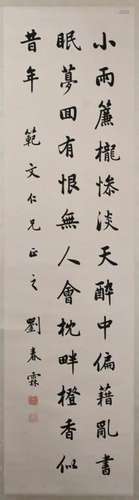 小雨簾櫳慘淡天醉中偏藉亂書
眠夢回有恨無人會枕畔橙香似
昔年
範文仁兄正之
劉春霖